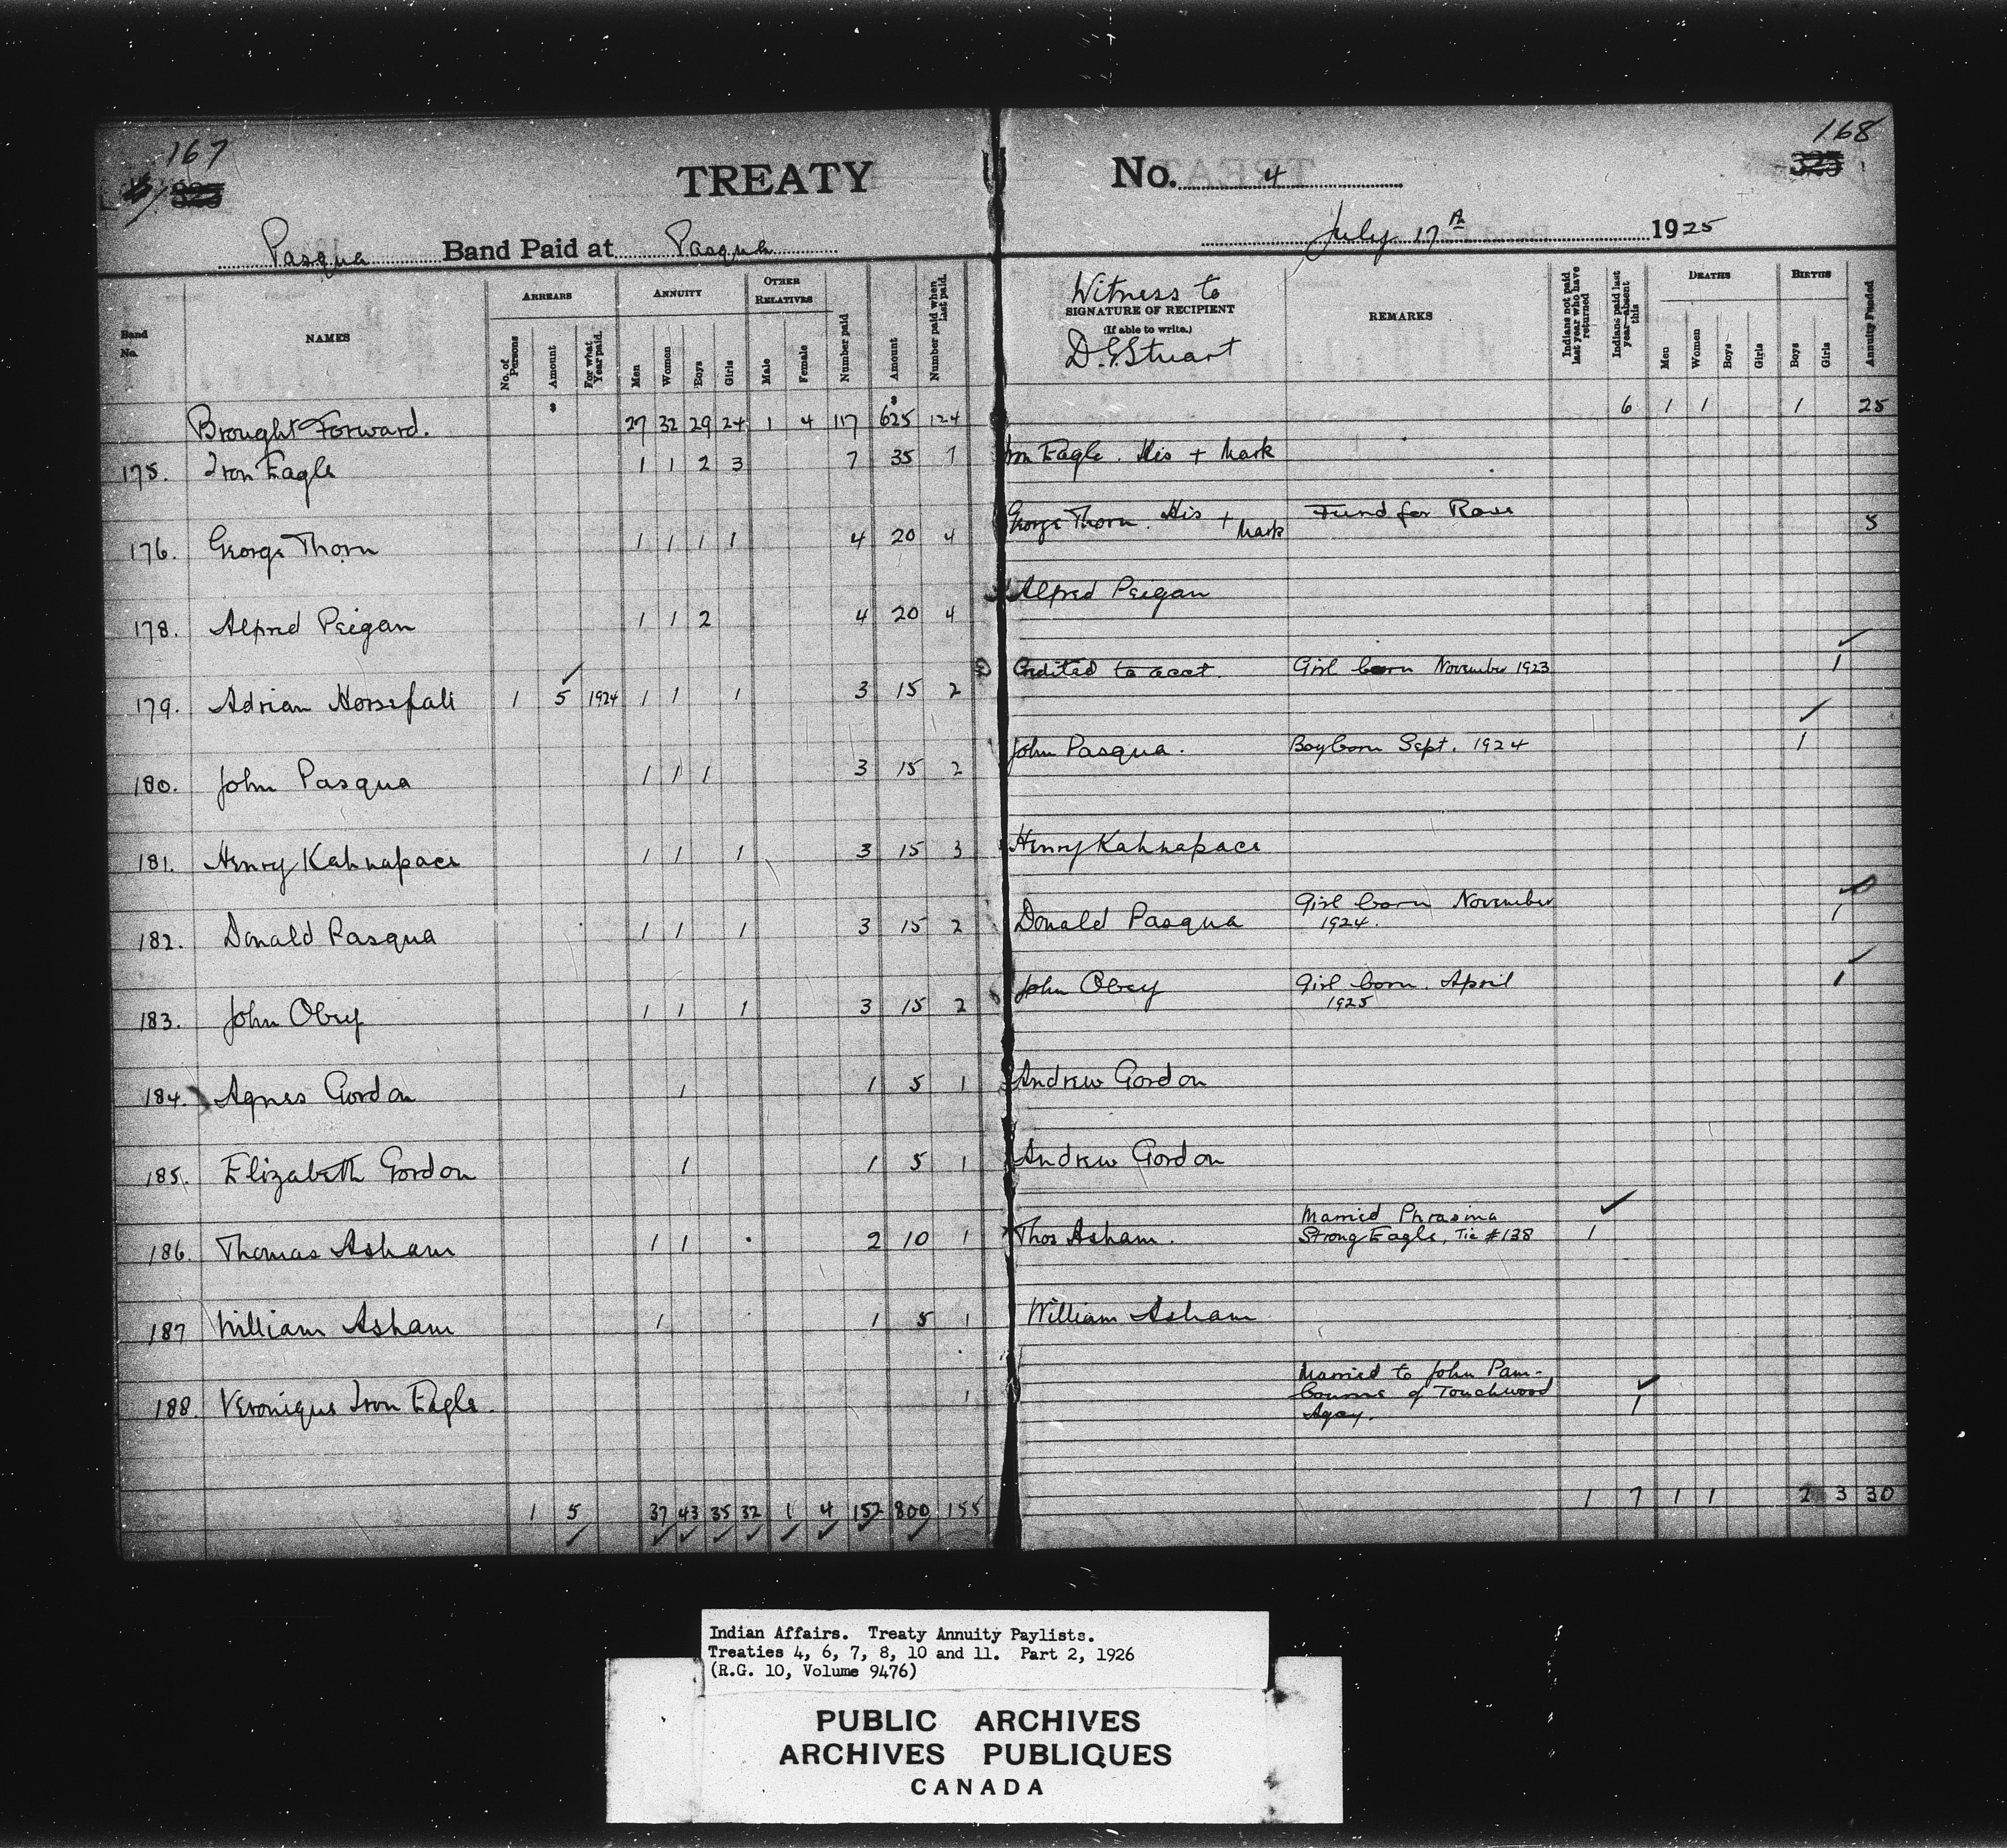 167
168
TREATY No. 4
Pasqua Band Paid at Pasqua
July 17th 1925
Band No.
NAMES
ARREARS
No. of Persons
Amount
For what Year paid.
ANNUITY
Men
Women
Boys
Girls
OTHER RELATIVES
Male
Female
Number paid
Amount
Number paid when last paid.
Witness to
SIGNATURE OF RECIPIENT
(If able to write.)
D. G. Stuart
REMARKS
Indians not paid last year who have returned
Indians paid last year—absent this
DEATHS
Men
Women
Boys
Girls
BIRTHS
Boys
Girls
Annuity Funded
$ $
Brought Forward. 27 32 29 24 1 4 117 625 124 6 1 1 1 25
175. Iron Eagle 1 1 2 3 7 35 7 Iron Eagle. His + Mark
176. George Thorn 1 1 1 1 4 20 4 George Thorn. His + Mark Fund for Rose 5
178. Alfred Peigan 1 1 2 4 20 4 Alfred Peigan
179. Adrian Horsefall 1 5 1924 1 1 1 3 15 2 Credited to acct. Girl born November 1923 1
180. John Pasqua 1 1 1 3 15 2 John Pasqua. Boy born Sept. 1924 1
181. Henry Kahnapace 1 1 1 3 15 3 Henry Kahnapace
182. Donald Pasqua 1 1 1 3 15 2 Donald Pasqua Girl born November 1924. 1
183. John Obey 1 1 1 3 15 2 John Obey Girl born. April 1925 1
184. Agnes Gordon 1 1 5 1 Andrew Gordon
185. Elizabeth Gordon 1 1 5 1 Andrew Gordon
186. Thomas Asham 1 1 2 10 1 Thos Asham. Married Phrasina Strong Eagle, Tic #138 1
187 William Asham 1 1 5 1 William Asham
188. Veronique Iron Eagle. 1 Married to John Pambourne of Touchwood Agcy. 1
1 5 37 43 35 32 1 4 152 800 155 1 7 1 1 2 3 30
Indian Affairs. Treaty Annuity Paylists.
Treaties 4, 6, 7, 8, 10 and 11. Part 2, 1926
(R.G. 10, Volume 9476)
PUBLIC ARCHIVES
ARCHIVES PUBLIQUES
CANADA